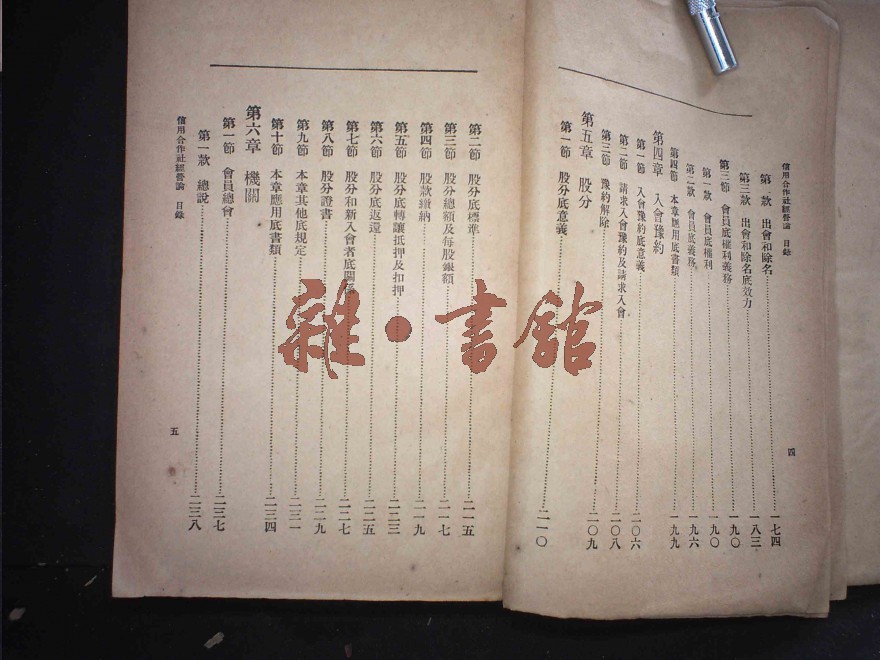 信用合作社經營論 目錄
第 款 出會和除名 一七四
第三款 出會和除名底效力 一八三
第三節 會員底權利義務 一九〇
第一款 會員底權利 一九〇
第二款 會員底義務 一九六
第四節 本章應用底書類 一九九
第四章 入會豫約
第一節 入會豫約底意義 二〇六
第二節 請求入會豫約及請求入會 二〇八
第三節 豫約解除 二〇九
第五章 股分
第一節 股分底意義 二一〇
四
第二節 股分底標準 二一五
第三節 股分總額及每股銀額 二一七
第四節 股款繳納 二一九
第五節 股分底轉讓抵押及扣押 二二三
第六節 股分底返還 二二五
第七節 股分和新入會者底關係 二二七
第八節 股分證書 二二九
第九節 本章其他底規定 二三一
第十節 本章應用底書類 二三四
第六章 機關
第一節 會員總會 二三七
第一款 總說 二三八
信用合作社經營論 目錄
五
雜·書館